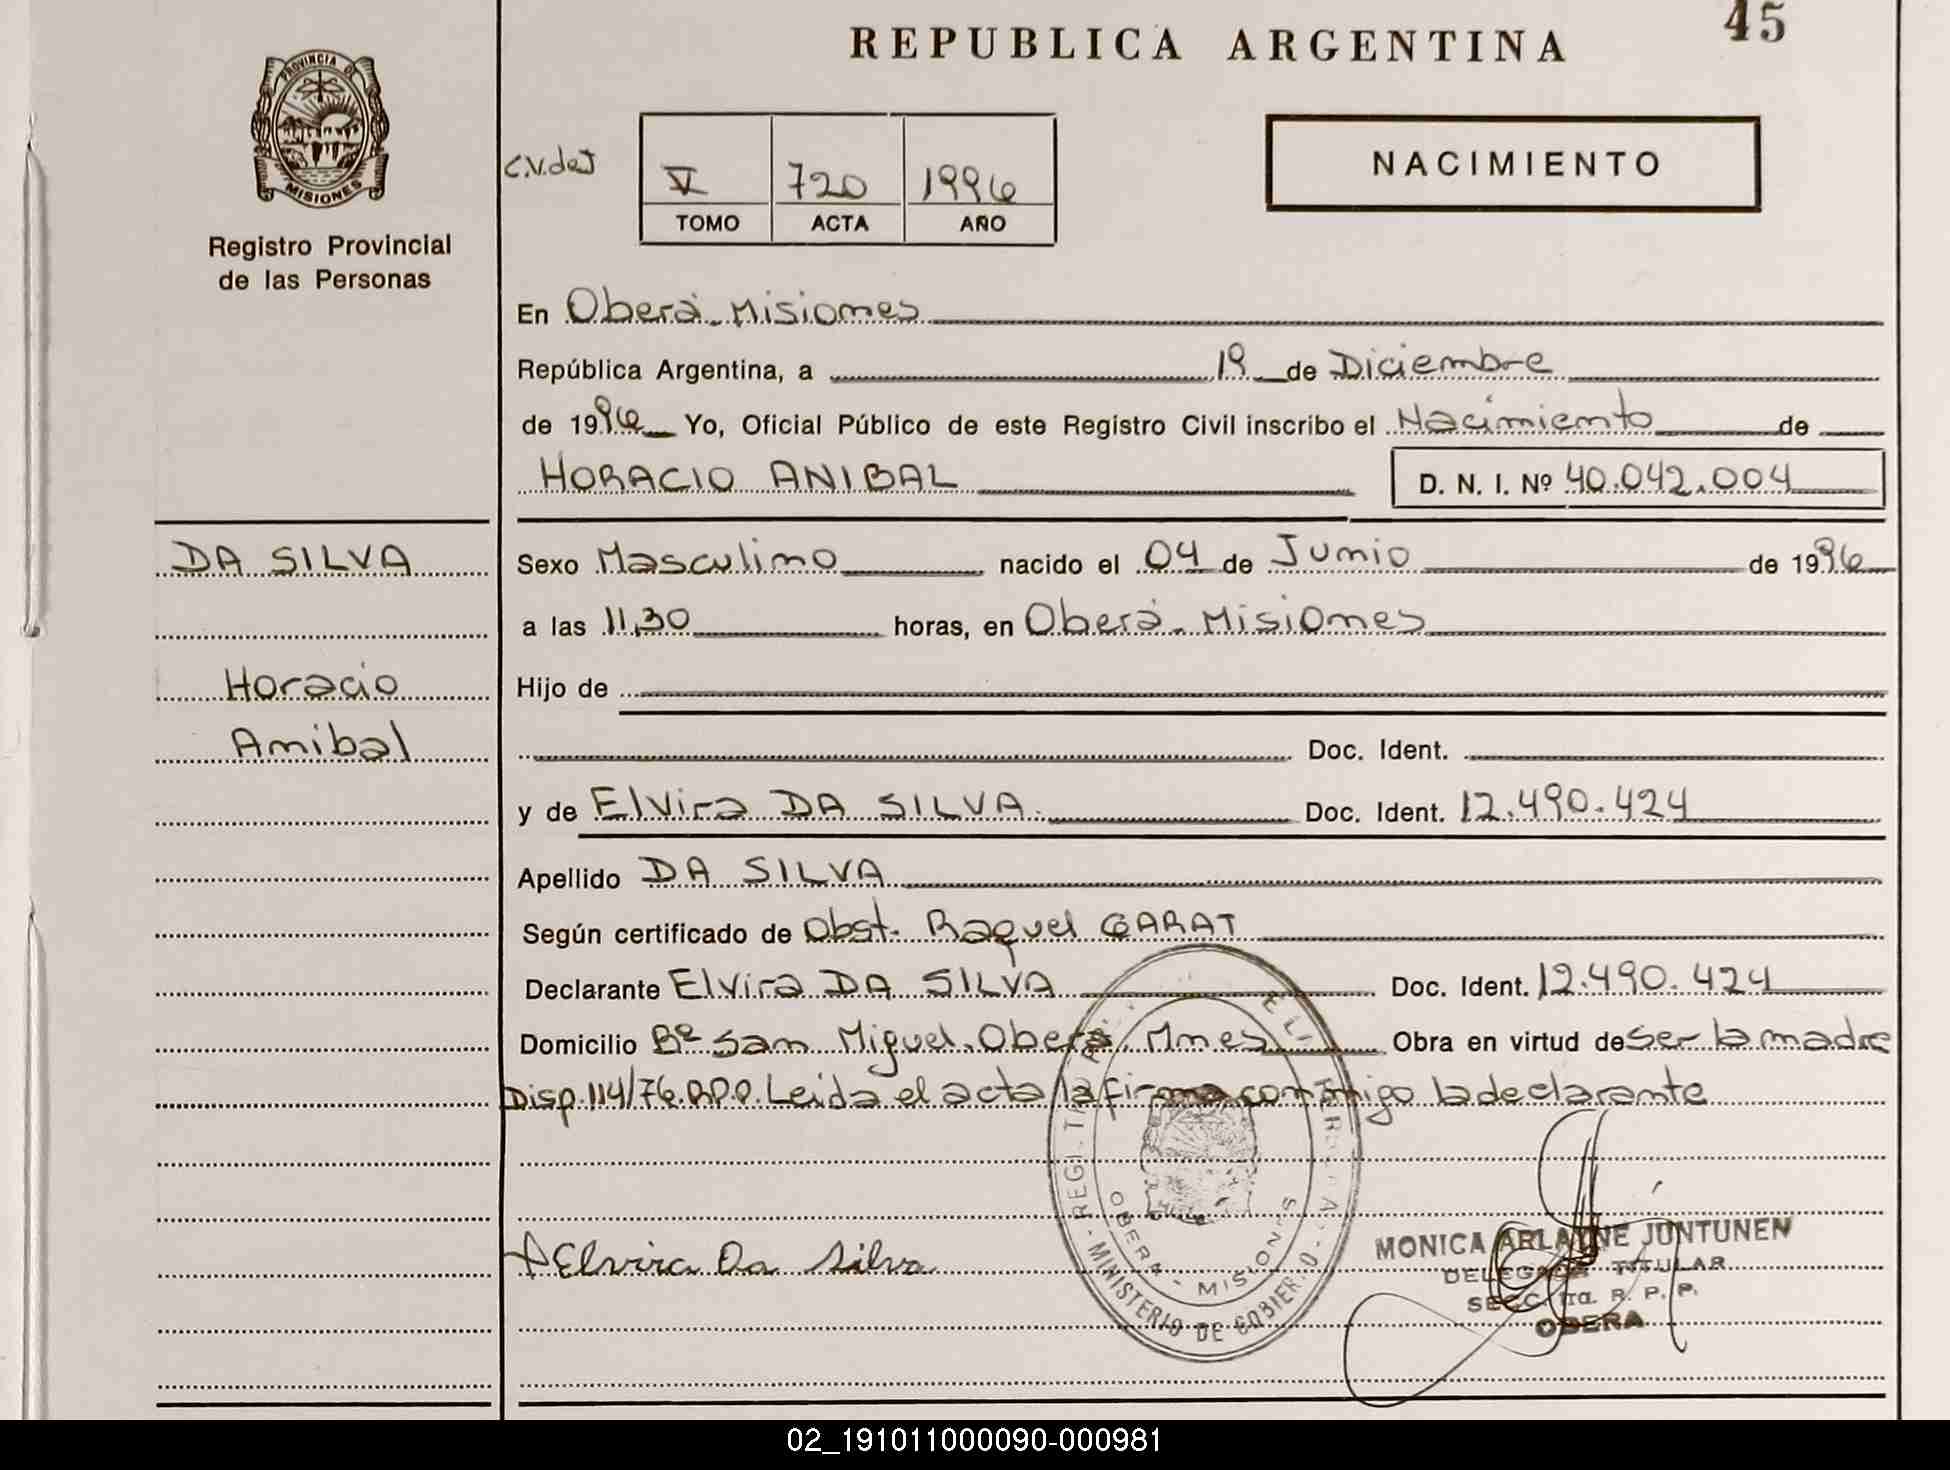 45
REPUBLICA ARGENTINA
PROVINCIA DE
MISIONES
Registro Provincial
de las Personas
V 720 1996
TOMO ACTA AÑO
NACIMIENTO
En Oberá - Misiones
República Argentina, a 19 de Diciembre
de 1996 Yo, Oficial Público de este Registro Civil inscribo el Nacimiento de
HORACIO ANIBAL D. N. I. Nº 40.042.004
DA SILVA
Horacio
Anibal
Sexo Masculino nacido el 04 de Junio de 1996
a las 11,30 horas, en Oberá - Misiones
Hijo de
Doc. Ident.
y de Elvira DA SILVA. Doc. Ident. 12.490.424
Apellido DA SILVA
Según certificado de Obst. Raquel GARAT
Declarante Elvira DA SILVA Doc. Ident. 12.490.424
Domicilio Bº San Miguel. Oberá. Mnes Obra en virtud de ser la madre
Disp. 114/76.RPP. Leida el acta la firma conmigo la declarante
Elvira Da Silva
MINISTERIO DE GOBIERNO
OBERA - MISIONES
MONICA ARLAINE JUNTUNEN
DELEGADA TITULAR
SECC. 1ra. R. P. P.
OBERA
02_191011000090-000981